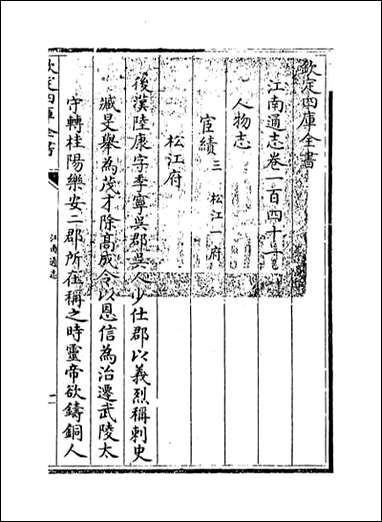 欽定四庫全書
江南通志卷一百四十一
人物志
宦績三 松江一府
松江府
後漢陸康字季寧吳郡吳人少仕郡以義烈稱刺史
臧旻舉為茂才除高成令以恩信為治遷武陵太
守轉桂陽樂安二郡所在稱之時靈帝欲鑄銅人
欽定四庫全書
江南通志